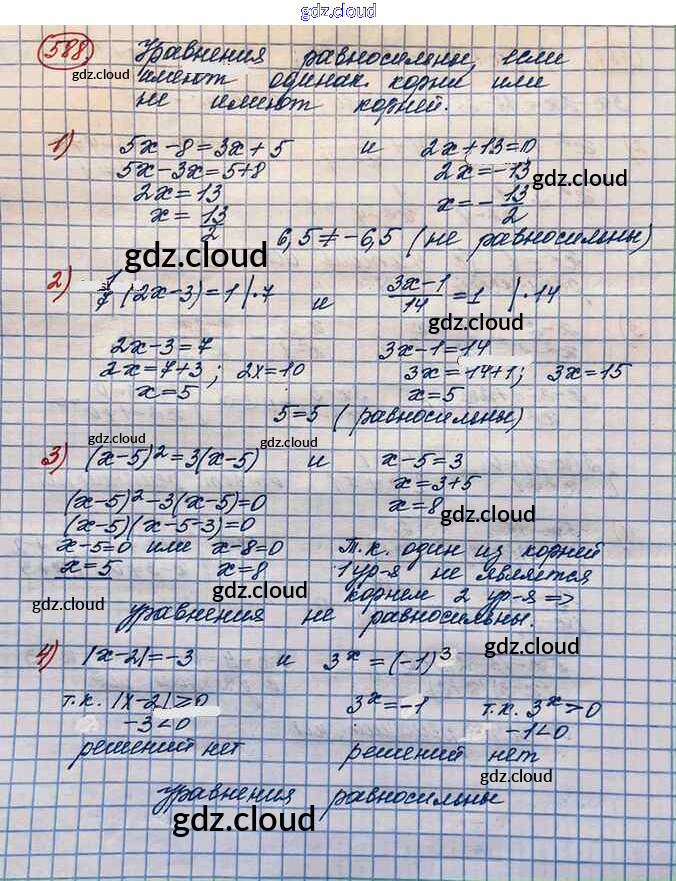 gdz.cloud
588. Уравнения равносильны, если
gdz.cloud имеют одинак. корни или
не имеют корней.
1) 5x-8=3x+5 и 2x+13=0
5x-3x=5+8 2x=-13
gdz.cloud
2x=13 x=-13/2
x=13/2
6,5≠-6,5 (не равносильны)
gdz.cloud
2) 1/7 (2x-3)=1 |·7 и (3x-1)/14=1 |·14
gdz.cloud
2x-3=7 3x-1=14
2x=7+3; 2x=10 3x=14+1; 3x=15
x=5 x=5
5=5 (равносильны)
gdz.cloud gdz.cloud
3) (x-5)²=3(x-5) и x-5=3
x=3+5
(x-5)²-3(x-5)=0 x=8
gdz.cloud
(x-5)(x-5-3)=0
x-5=0 или x-8=0 Т.к. один из корней
x=5 x=8 1 ур-я не является
gdz.cloud корнем 2 ур-я =>
уравнения не равносильны.
gdz.cloud
4) |x-2|=-3 и 3ˣ=(-1)³
т.к. |x-2|≥0 3ˣ=-1 т.к. 3ˣ>0
-3<0 -1<0
решений нет решений нет
gdz.cloud
Уравнения равносильны
gdz.cloud